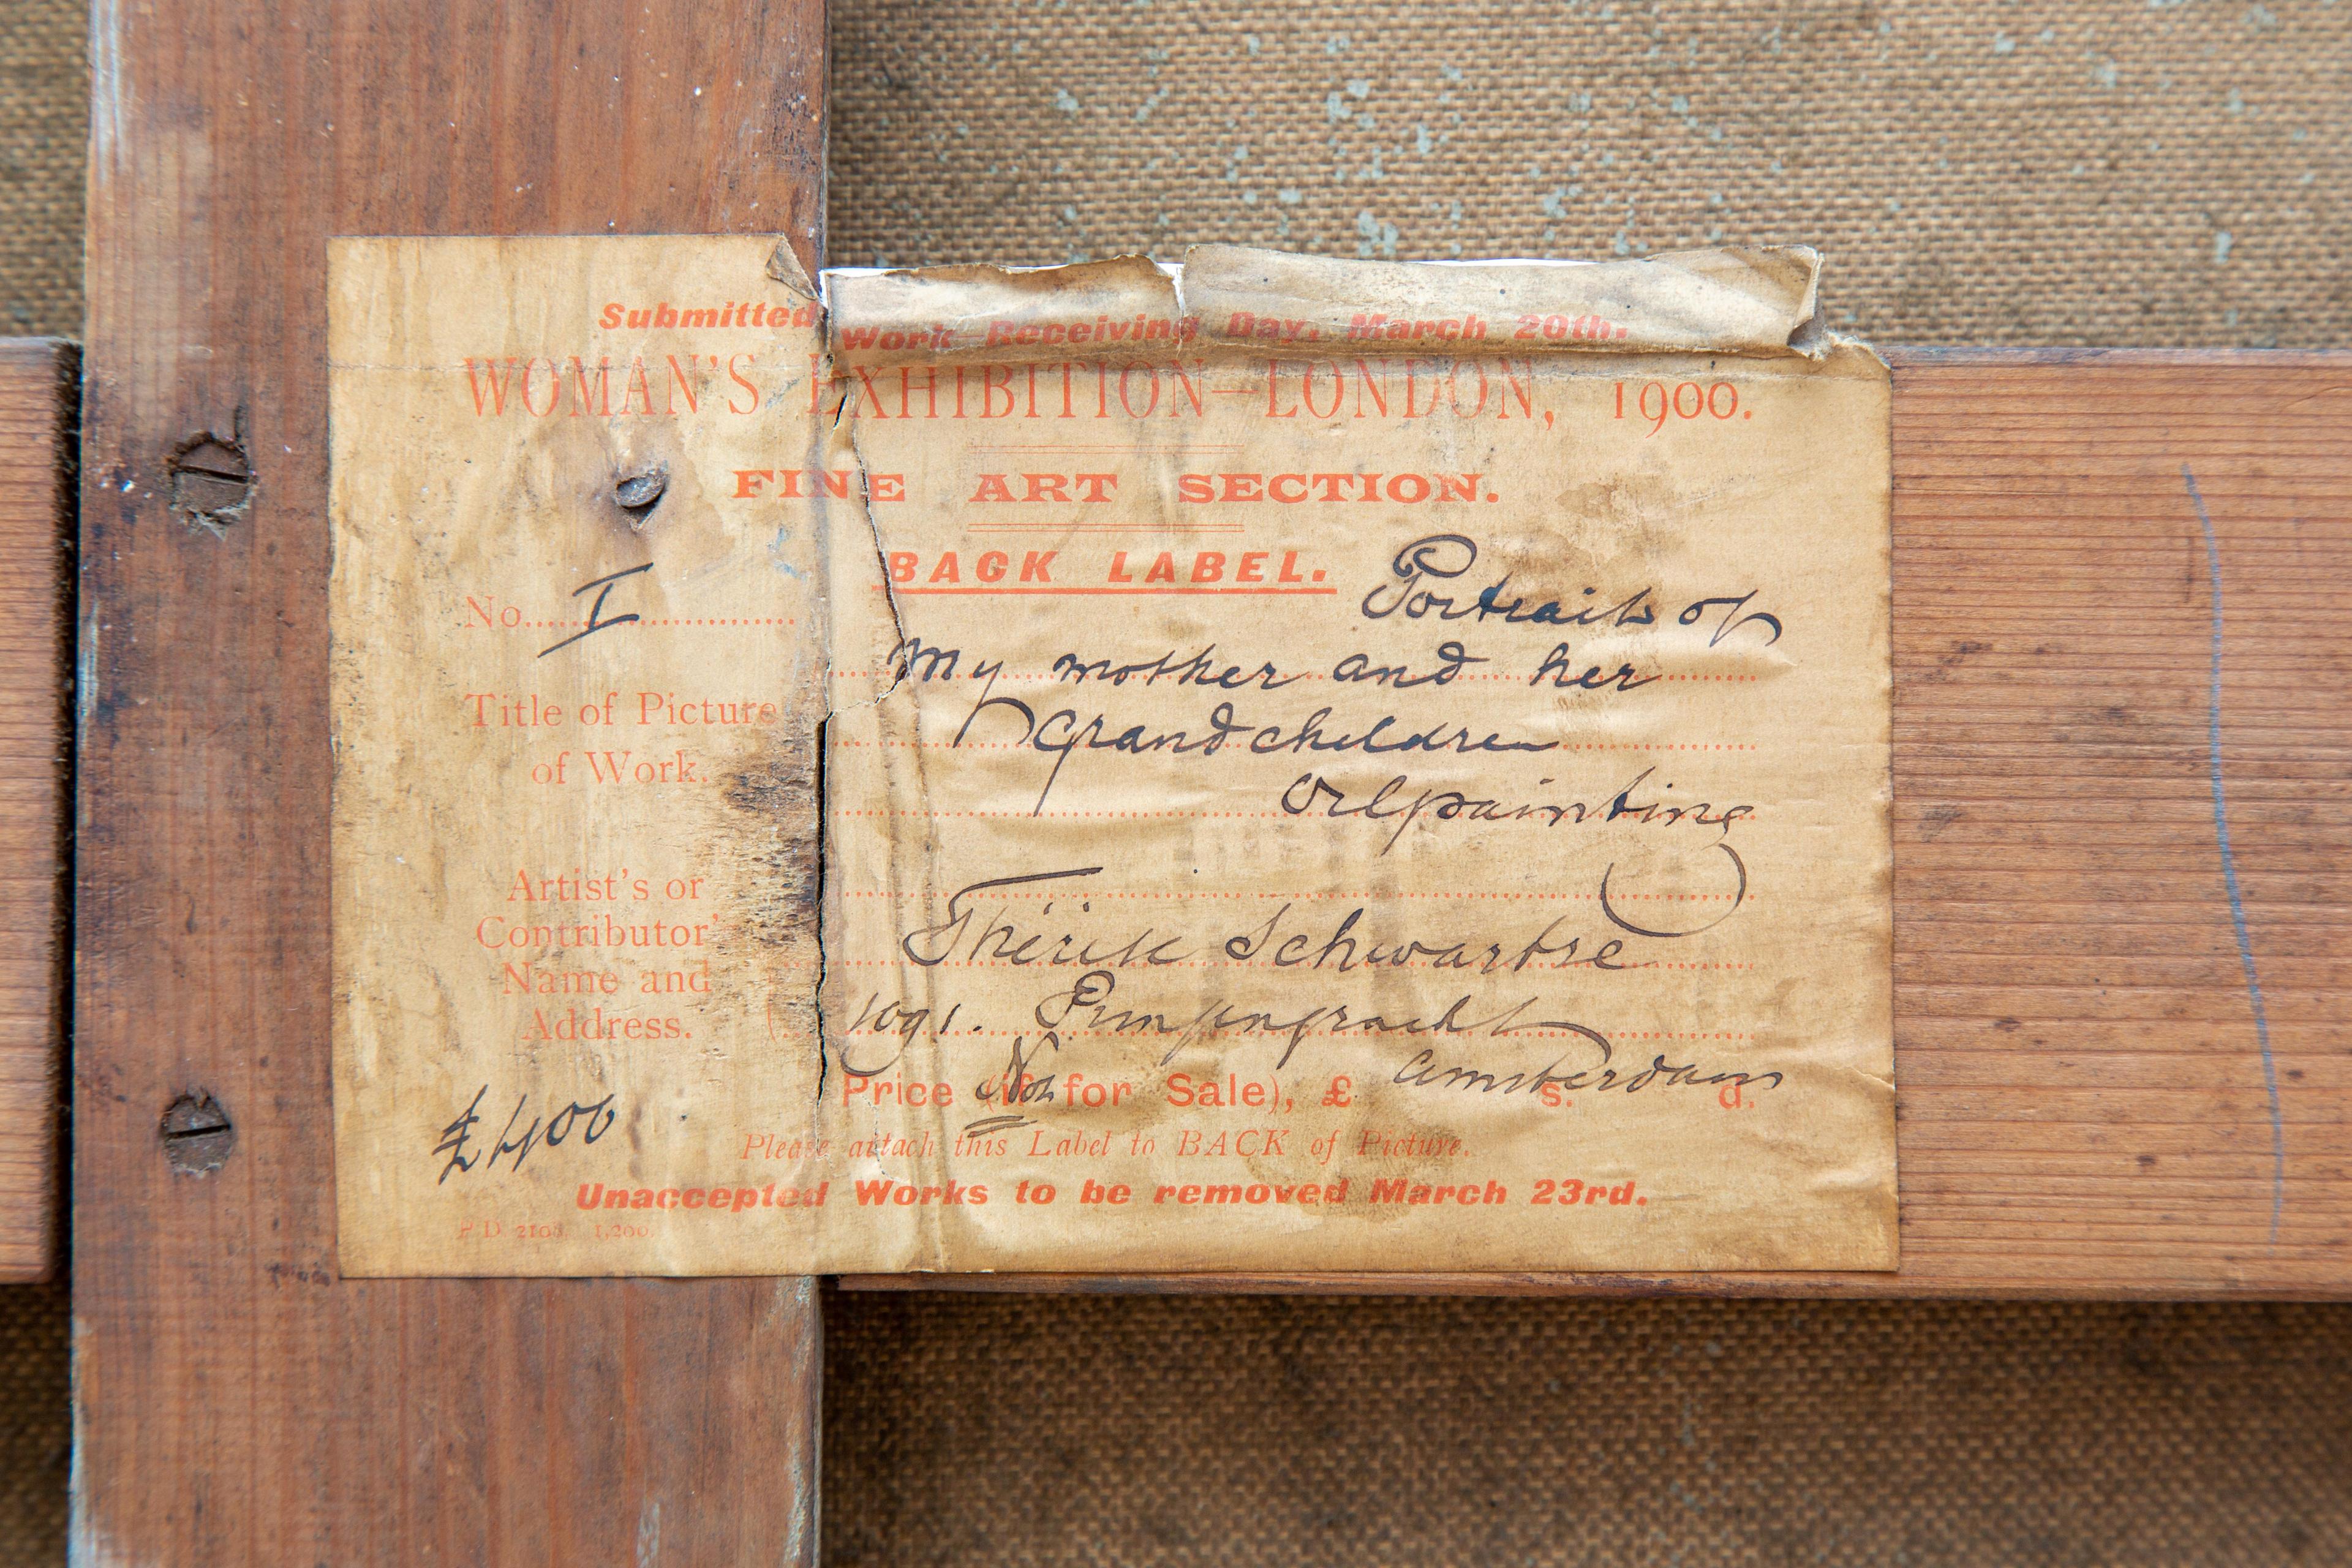 Submitted Work—Receiving Day, March 20th.
WOMAN'S EXHIBITION—LONDON, 1900.
FINE ART SECTION.
BACK LABEL.
No. I
Portrait of
My mother and her
Grandchildren
Oilpainting
Title of Picture
of Work.
Artist's or
Contributor'
Name and
Address.
Thérèse Schwartze
1091. Prinsengracht
Amsterdam
Price (if for Sale), £ s. d.
Not
£400
Please attach this Label to BACK of Picture.
Unaccepted Works to be removed March 23rd.
1,200.